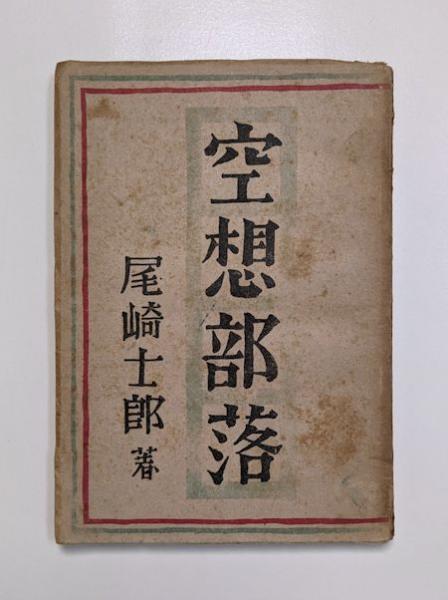 空想部落
尾崎士郎著